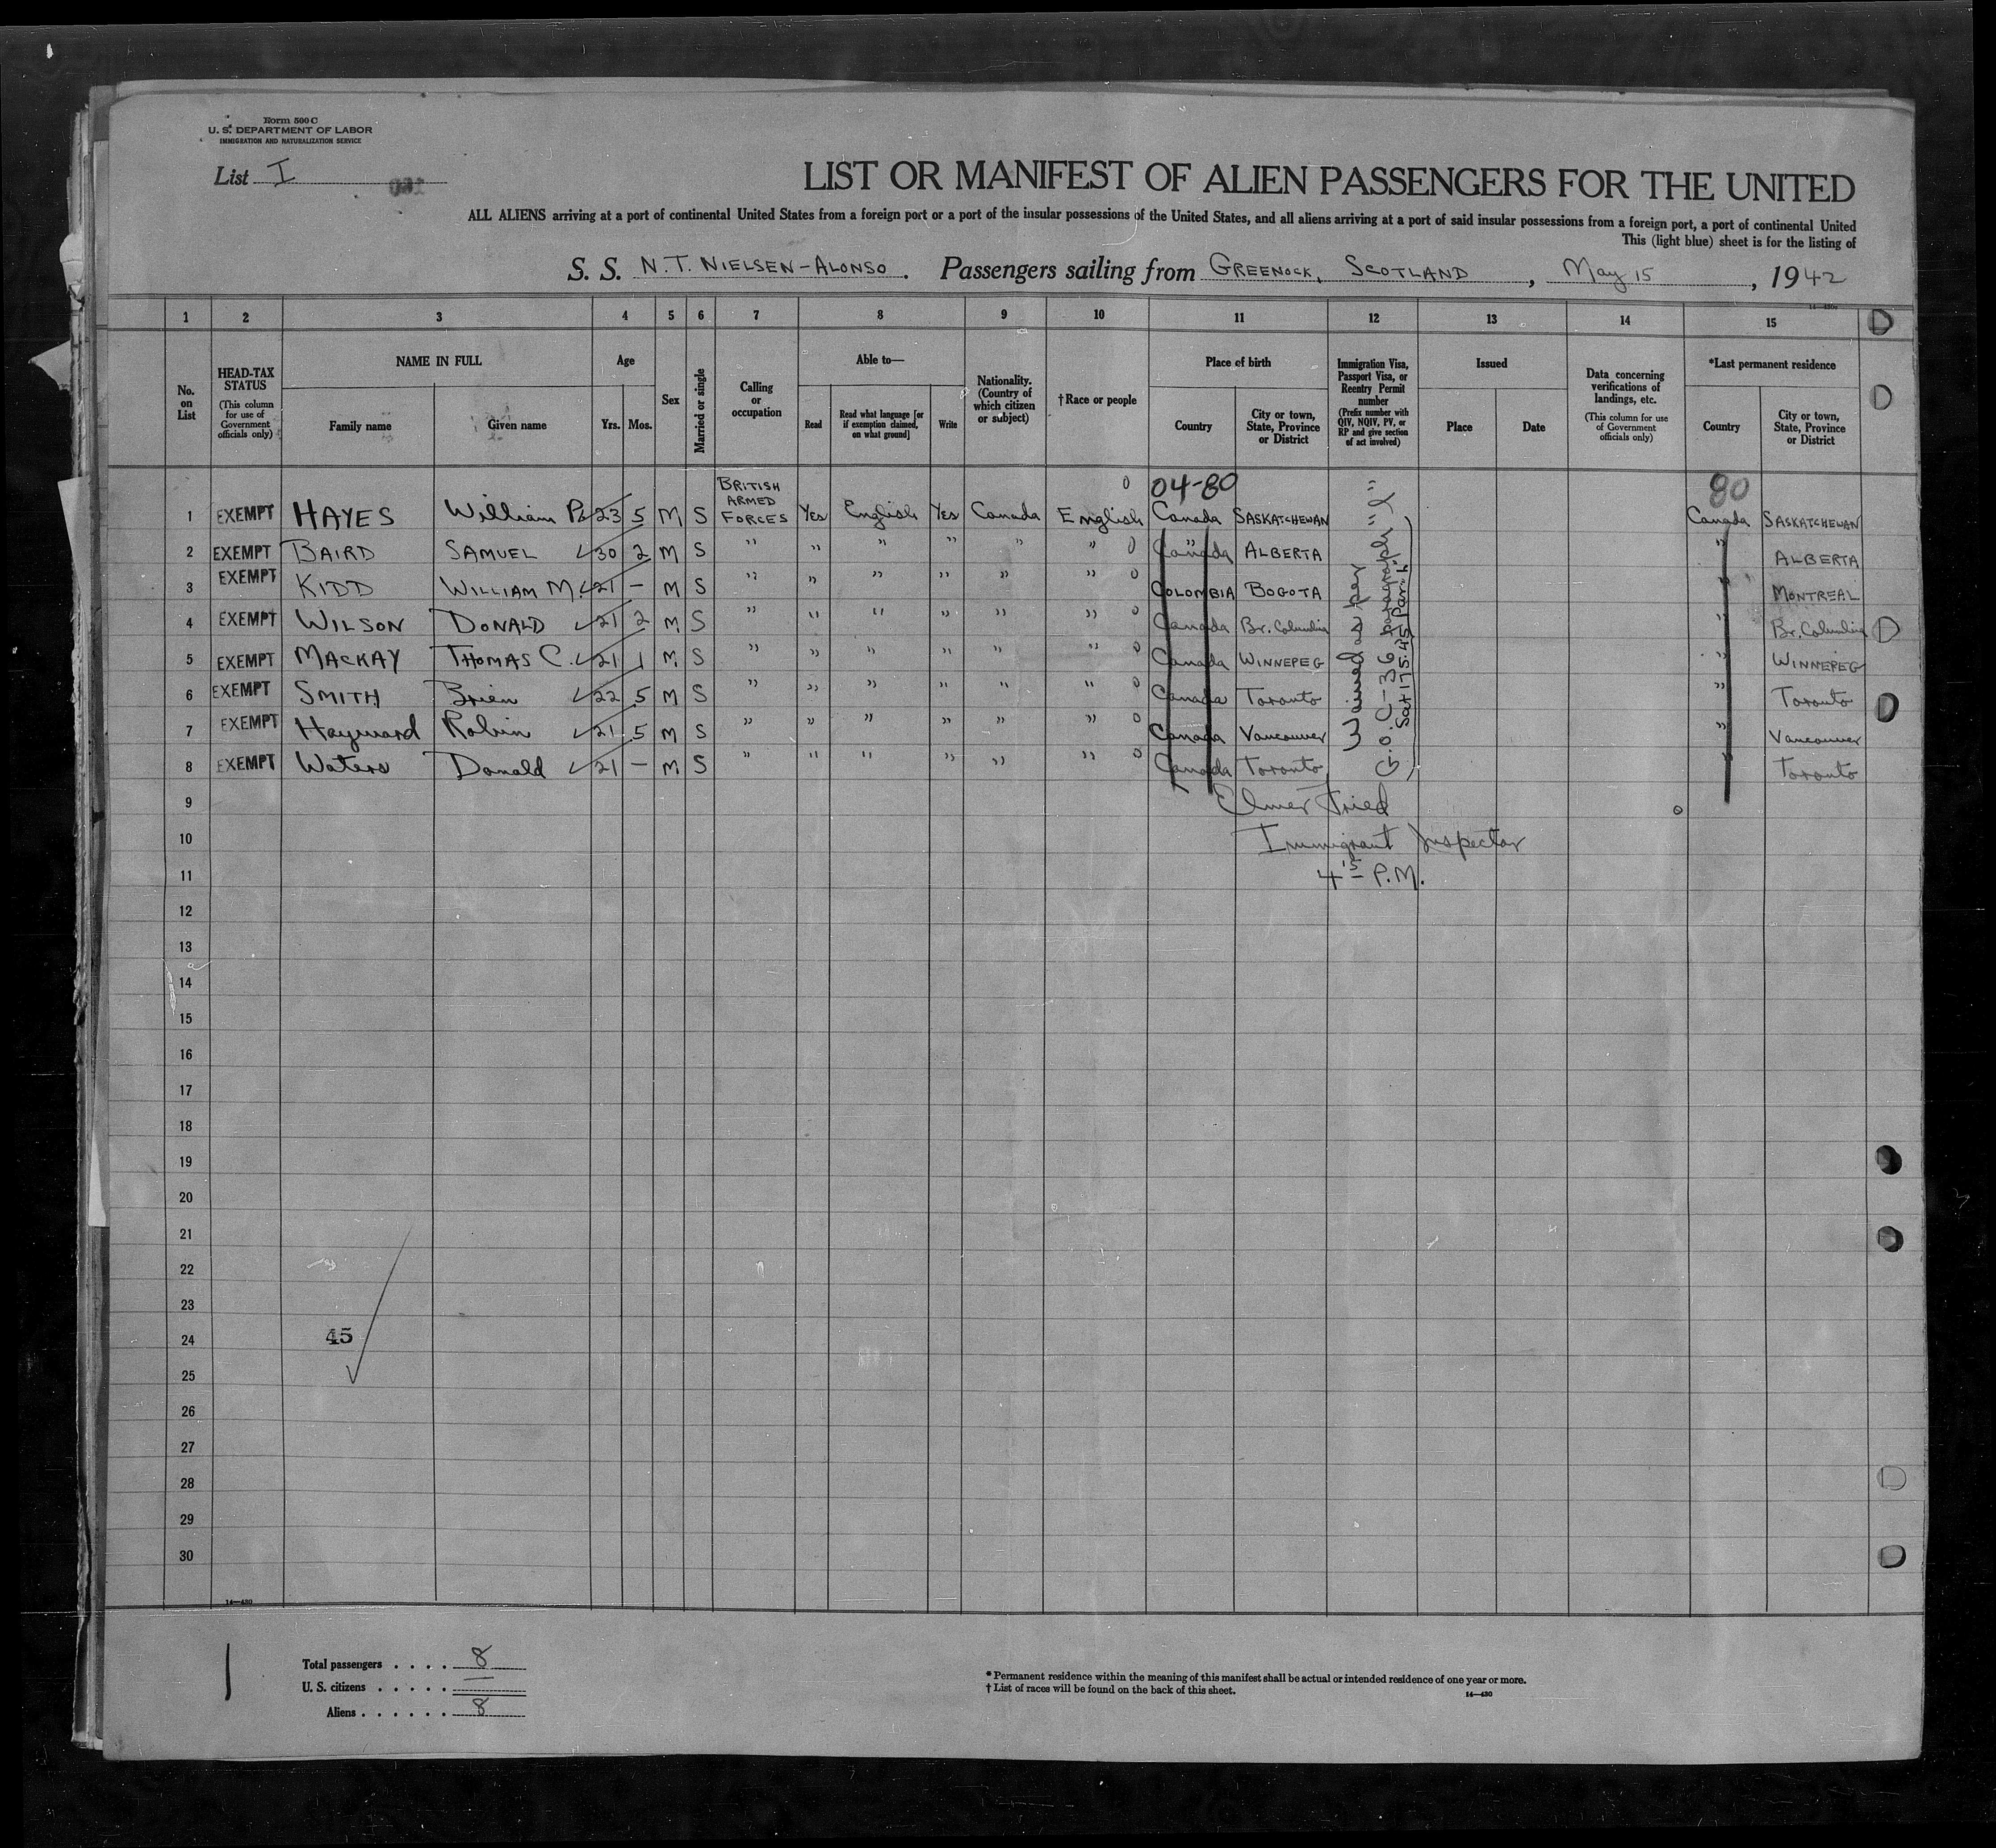 Form 500 C
U. S. DEPARTMENT OF LABOR
IMMIGRATION AND NATURALIZATION SERVICE
List I
LIST OR MANIFEST OF ALIEN PASSENGERS FOR THE UNITED
ALL ALIENS arriving at a port of continental United States from a foreign port or a port of the insular possessions of the United States, and all aliens arriving at a port of said insular possessions from a foreign port, a port of continental United
This (light blue) sheet is for the listing of
S. S. N.T. NIELSEN-ALONSO. Passengers sailing from GREENOCK, SCOTLAND, May 15, 1942
14—430
1 2 3 4 5 6 7 8 9 10 11 12 13 14 15
No. on List
HEAD-TAX STATUS (This column for use of Government officials only)
NAME IN FULL
Family name Given name
Age
Yrs. Mos.
Sex
Married or single
Calling or occupation
Able to—
Read Read what language [or if exemption claimed, on what ground] Write
Nationality. (Country of which citizen or subject)
†Race or people
Place of birth
Country City or town, State, Province or District
Immigration Visa, Passport Visa, or Reentry Permit number (Prefix number with QIV, NQIV, PV, or RP and give section of act involved)
Issued
Place Date
Data concerning verifications of landings, etc. (This column for use of Government officials only)
*Last permanent residence
Country City or town, State, Province or District
04-80 80
1 EXEMPT HAYES William P. 23 5 M S BRITISH ARMED FORCES Yes English Yes Canada English Canada SASKATCHEWAN Canada SASKATCHEWAN
2 EXEMPT BAIRD SAMUEL 30 2 M S " " " " " " Canada ALBERTA " ALBERTA
3 EXEMPT KIDD WILLIAM M. 21 — M S " " " " " " COLOMBIA BOGOTA " MONTREAL
4 EXEMPT WILSON DONALD 21 2 M S " " " " " " Canada Br. Columbia " Br. Columbia
5 EXEMPT MACKAY THOMAS C. 21 1 M S " " " " " " Canada WINNEPEG " WINNEPEG
6 EXEMPT SMITH Brien 22 5 M S " " " " " " Canada Toronto " Toronto
7 EXEMPT Hayward Robin 21 5 M S " " " " " " Canada Vancouver " Vancouver
8 EXEMPT Waters Donald 21 — M S " " " " " " Canada Toronto " Toronto
Waived as per
G.O. C-36 paragraph "l"
Sect 175.45 Par "h"
9
Elmer Fried
10
Immigrant Inspector
11
4 15 P.M.
12
13
14
15
16
17
18
19
20
21
22
23
24
45
25
26
27
28
29
30
14—430
Total passengers . . . . 8
U. S. citizens . . . . . —
Aliens . . . . . . 8
* Permanent residence within the meaning of this manifest shall be actual or intended residence of one year or more.
† List of races will be found on the back of this sheet.
14—430